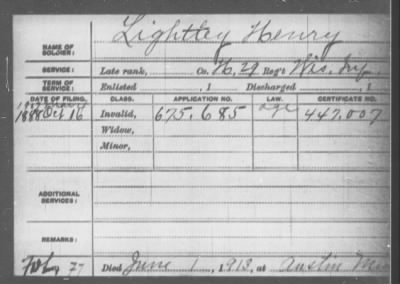 Lightley Henry
NAME OF SOLDIER:
SERVICE: Late rank, Co. H, 29 Reg't Wis. Inf
TERM OF SERVICE: Enlisted , 1 Discharged , 1
DATE OF FILING. CLASS. APPLICATION NO. LAW. CERTIFICATE NO.
1888 Oct 16 Invalid, 675.685 age 447.007
Widow,
Minor,
ADDITIONAL SERVICES:
REMARKS:
Died June 1, 1913, at Austin